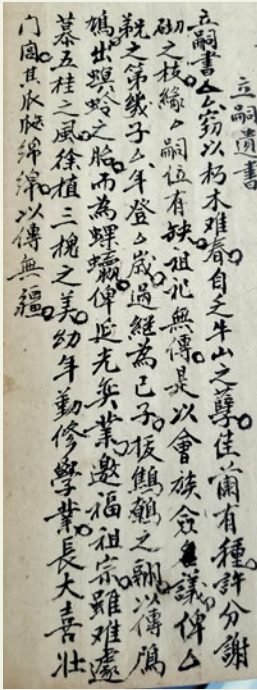 立嗣遺書
立嗣書厶厶窃以朽木难春。自乏牛山之孽。佳蘭有種。許分謝
砌之枝。緣厶嗣位有缺。祖祀無傳。是以會族僉議。俾厶
親之第幾子厶年登厶歲。過継為己子。扳鶺之翮。以傳鳲
鳩。出螟蛉之胎。而為蜾蠃。俾延光奕業。邀福祖宗。雖难遽
慕五桂之風。徐植三槐之美。幼年勤修學業。長大喜壯
门闾。其瓜瓞綿綿。以傳無疆。